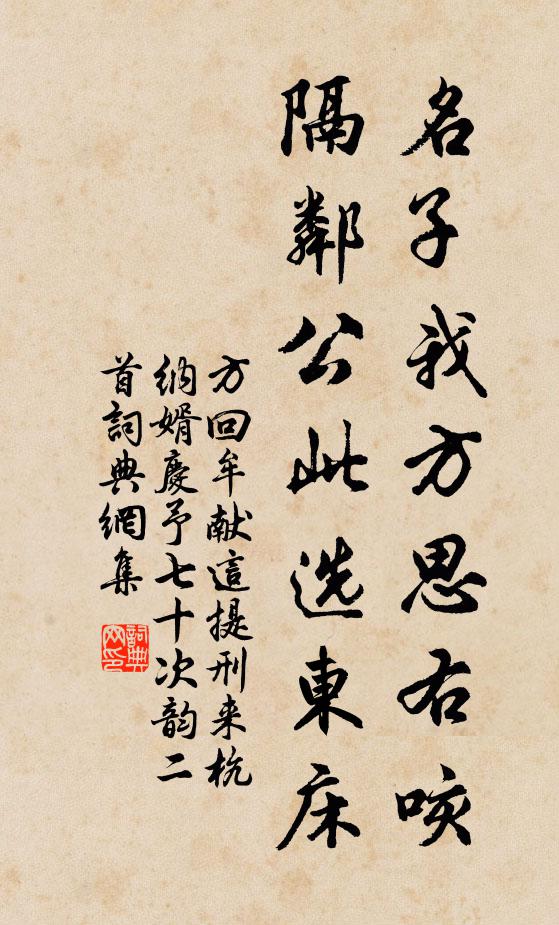 名子我方思右咳
隔鄰公此选東床
方回牟献這提刑来杭
纳婿慶予七十次韵二
首詞典網集
詞典網印